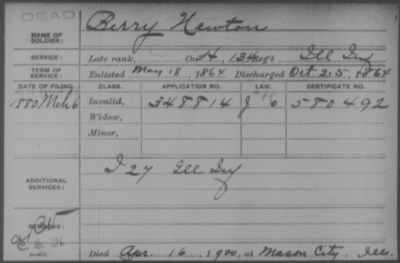 DEAD
NAME OF SOLDIER: Berry Newton
SERVICE: Late rank, Co. H, 134 Reg't Ill Inf
TERM OF SERVICE: Enlisted May 18, 1864 Discharged Oct 25, 1864
DATE OF FILING. CLASS. APPLICATION NO. LAW. CERTIFICATE NO.
1880 Mch 6 Invalid, 348814 580492
Widow,
Minor,
ADDITIONAL SERVICES: I 27 Ill Inf
REMARKS:
Died Apr. 16, 1900, at Mason City, Ills.